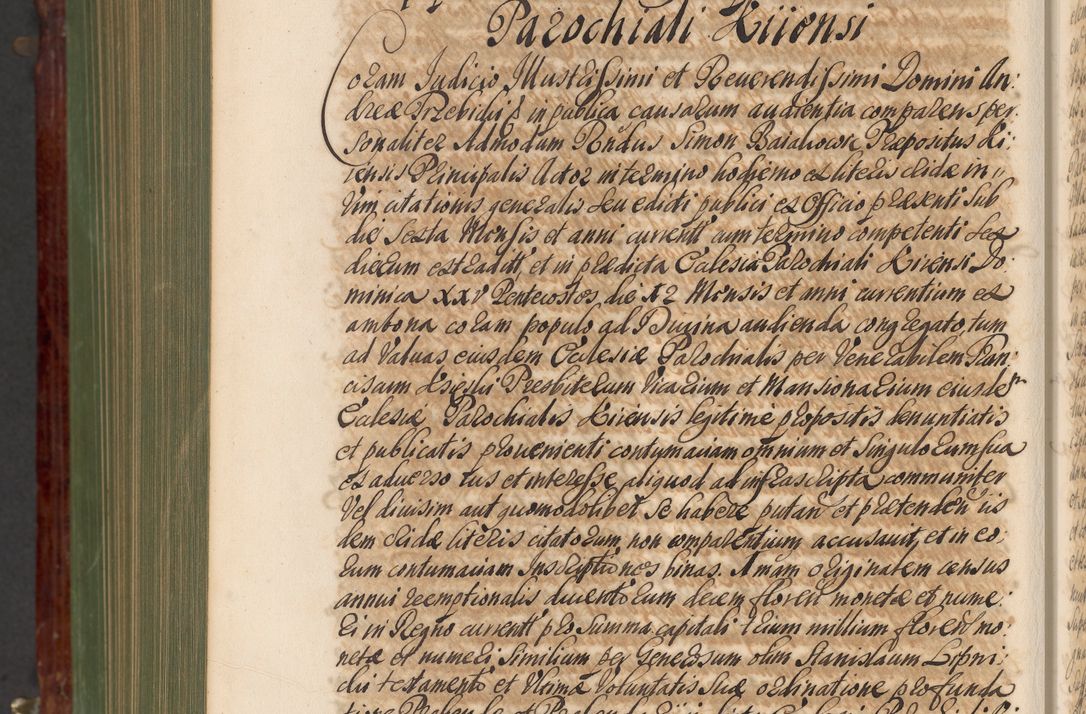 Parochiali Kiiensi
Coram Judicio Illustrissimi et Reverendissimi Domini An:
dreæ Trzebicki in publica causarum audientia comparens per
sonaliter Admodum Rñdus Simon Præpositus Ki:
iensis Principalis Actor in termino hodierno ex literis cridæ in
vim citationis generalis seu edicti publici ex Officio præsenti sub
die Sexta Mensis et anni currentt cum termino competenti fes
dierum extraditt, et in prædicta Ecclesia Parochiali Kiiensi Do:
minica XXV Pentecostes die 12 Mensis et anni currentium ex
ambona coram populo ad Divina audienda congregato, tum
ad Valvas eiusdem Ecclesiæ Parochialis per Venerabilem Fran:
ciscum Presbiterum Vicarium et Mansionarium eiusdem
Ecclesiæ Parochialis Kiiensis legitime propositis denuntiatis
et publicatis provenienti contumaciam omnium et singulorum sua
ex adverso ius et interesse aliquod ad infrascripta communiter
vel divisim aut quomodolibet se habere putan et prætenden iis
dem cridæ literis citatorum, non comparentium accusavit, et in eo:
rum contumaciam Inscriptiones binas. Aham originalem census
annui reemptionalis ducentorum decem floren monetæ et nume:
ri in Regno currentt pro Summa capitali trium millium floren mo:
netæ et numeri similium per Generosum olim Stanislaum Lipni:
cki testamento et Ultimæ Voluntatis suæ ordinatione pro funda